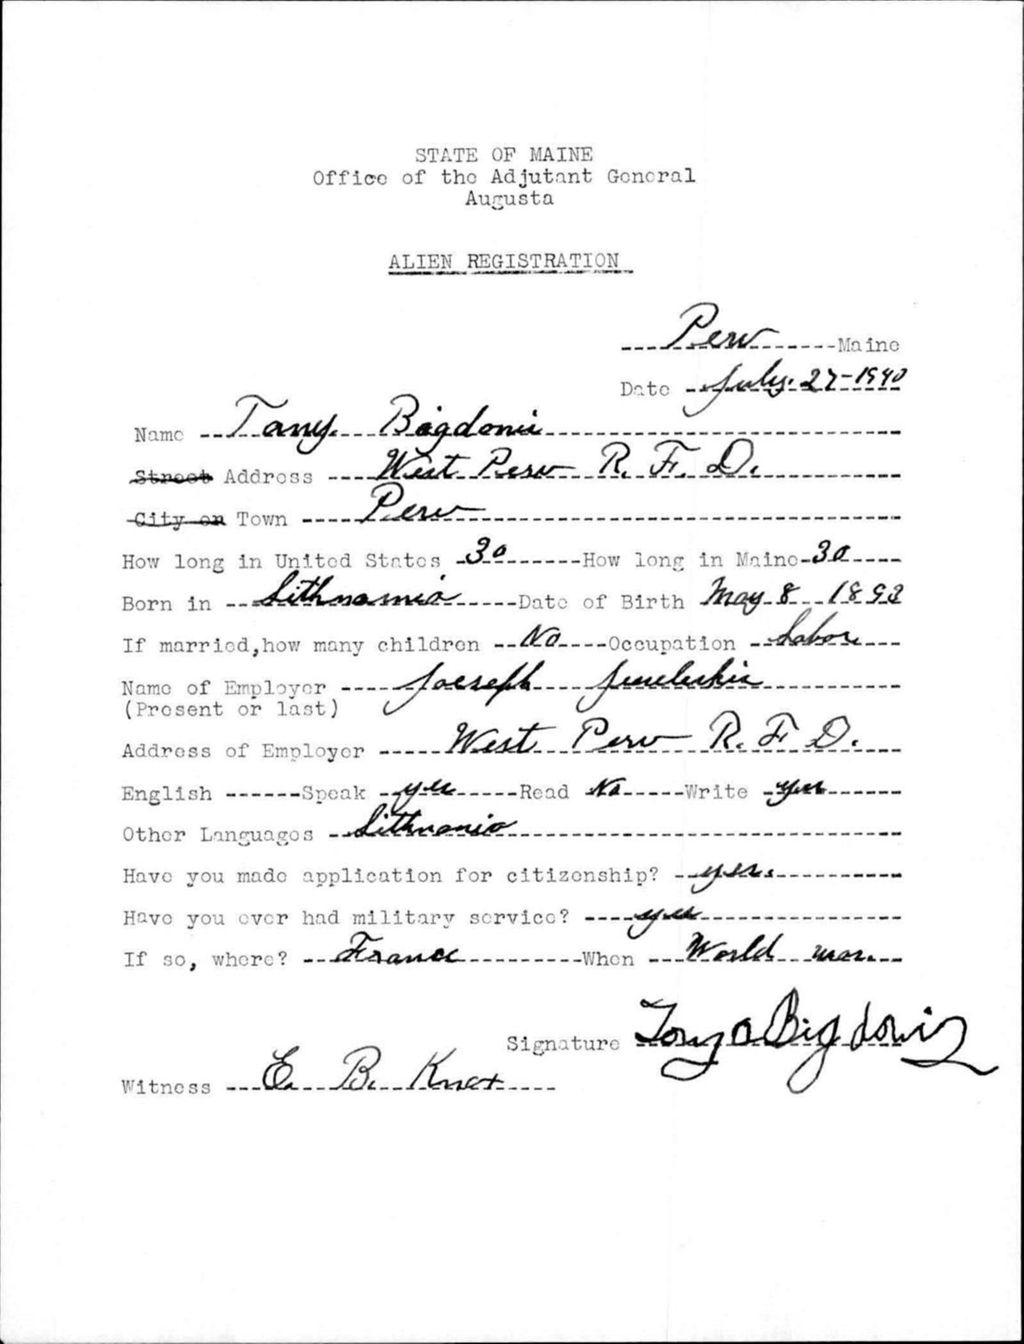 STATE OF MAINE
Office of the Adjutant General
Augusta
ALIEN REGISTRATION
Peru Maine
Date July. 27-1940
Name Tany. Bigdonis
Street Address West Peru R. F. D.
City or Town Peru
How long in United States 30 How long in Maine 30
Born in Lithnamia Date of Birth May 8 1893
If married, how many children No Occupation Labor
Name of Employer Joeseph
(Present or last)
Address of Employer West Peru R. F. D.
English Speak yes Read No Write yes
Other Languages Lithuania
Have you made application for citizenship? yes.
Have you ever had military service? yes
If so, where? France When World war.
Signature Tony
Witness E. B. Knox